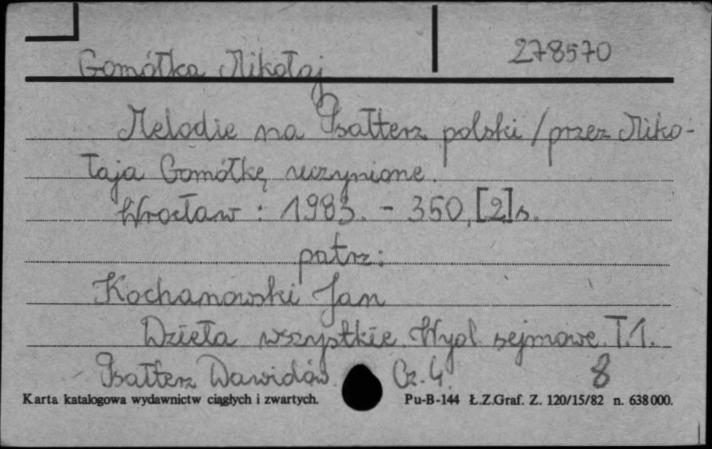 Gomółka Mikołaj 278570
Melodie na Psałterz polski / przez Miko-
łaja Gomółkę uczynione.
Wrocław : 1983. - 350, [2] s.
patrz:
Kochanowski Jan
Dzieła wszystkie. Wyd. sejmowe. T.1.
Psałterz Dawidów. Cz. 4. 8
Karta katalogowa wydawnictw ciągłych i zwartych. Pu-B-144 Ł.Z.Graf. Z. 120/15/82 n. 638000.